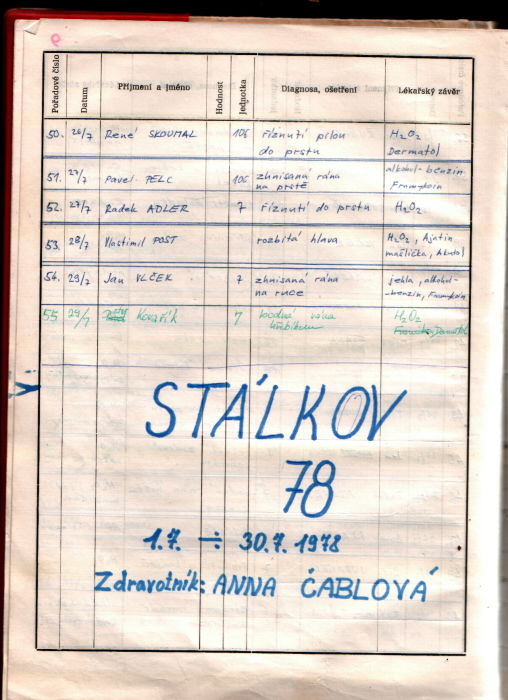 Pořadové číslo Datum Příjmení a jméno Hodnost Jednotka Diagnosa, ošetření Lékařský závěr
50. 26/7 René SKOUMAL 106 říznutí pilou H2O2
do prstu Dermatol
51. 27/7 Pavel PELC 106 zhnisaná rána alkohol-benzin
na prstě Framykoin
52. 27/7 Radek ADLER 7 říznutí do prstu H2O2
53. 28/7 Vlastimil POST rozbitá hlava H2O2, Ajatin
mašlička, Akutol
54. 29/7 Jan VLČEK 7 zhnisaná rána jehla, alkohol-
na ruce -benzin, Framykoin
55 29/7 Kovařík 7 bodná rána H2O2
hřebíkem Dermatol
STÁLKOV
78
1.7. ÷ 30.7. 1978
Zdravotník: ANNA ČABLOVÁ